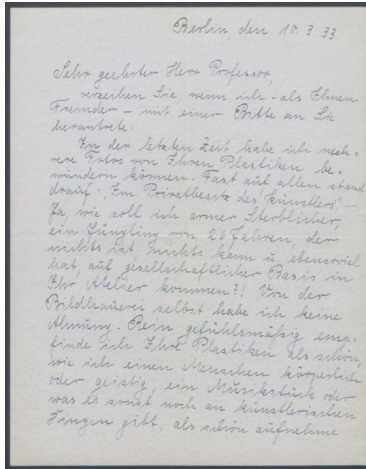 Berlin, den 10. 3. 33
Sehr geehrter Herr Professor,
verzeihen Sie, wenn ich - als Ihnen
Fremder - mit einer Bitte an Sie
herantrete:
In der letzten Zeit habe ich meh-
rere Fotos von Ihren Plastiken be-
wundern können. Fast auf allen stand
drauf: „Im Privatbesitz des Künstlers“.
Ja, wie soll ich armer Sterblicher,
ein Jüngling von 26 Jahren, der
nichts ist, nichts kann u. ebensoviel
hat, auf gesellschaftlicher Basis in
Ihr Atelier kommen?! Von der
Bildhauerei selbst habe ich keine
Ahnung. Rein gefühlsmäßig emp-
finde ich Ihre Plastiken als schön,
wie ich einen Menschen körperlich
oder geistig, ein Musikstück oder
was es sonst noch an künstlerischen
Dingen gibt, als schön aufnehme